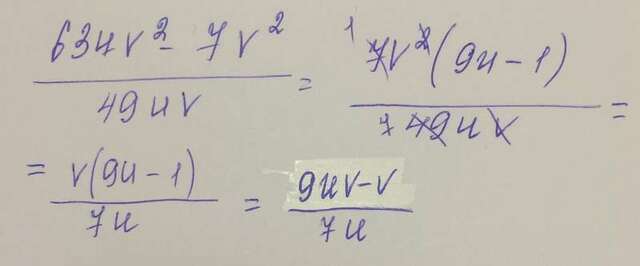 63uv² - 7v² / 49uv = ¹ 7v²(9u - 1) / ⁷ 49uv =
= v(9u - 1) / 7u = 9uv - v / 7u